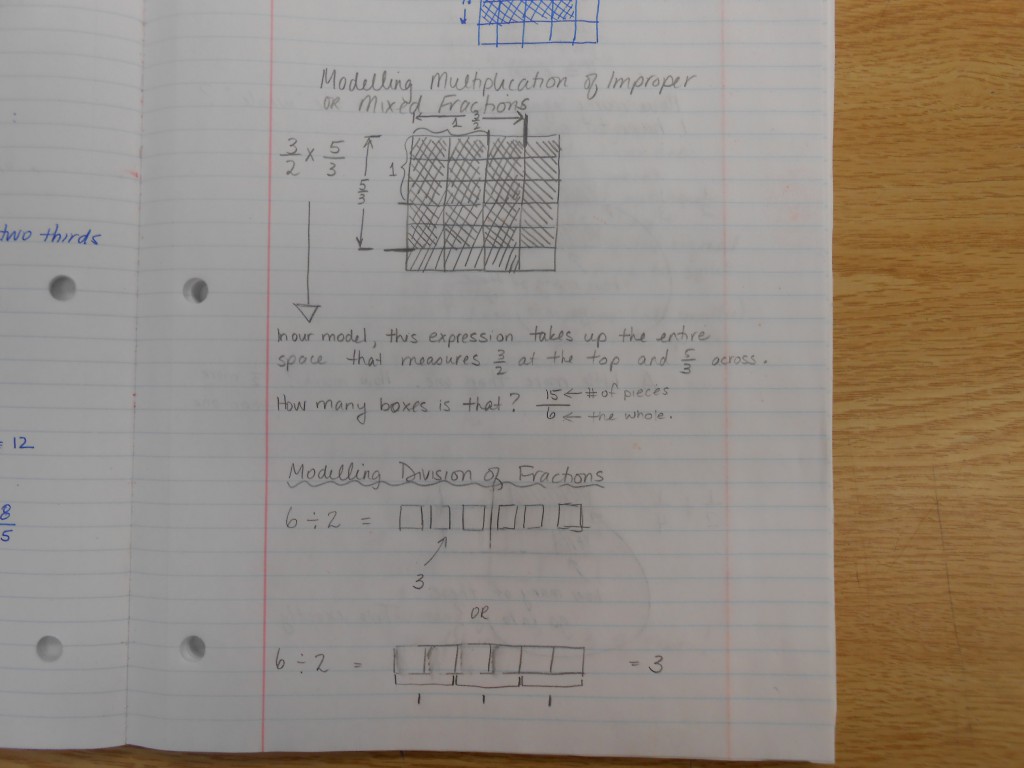 Modelling Multiplication of Improper
or Mixed Fractions
3/2
1
3/2 × 5/3
5/3
1
two thirds
In our model, this expression takes up the entire
space that measures 3/2 at the top and 5/3 across.
How many boxes is that? 15/6 ← # of pieces
← the whole.
= 12
Modelling Division of Fractions
8/5
6 ÷ 2 =
3
OR
6 ÷ 2 = = 3
1 1 1